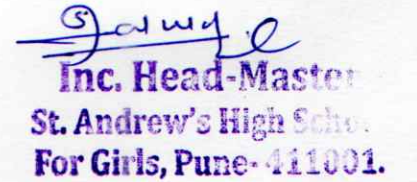 Inc. Head-Master
St. Andrew's High Scho
For Girls, Pune-411001.